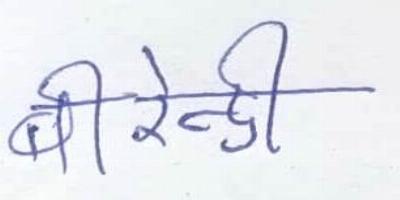 बीरेन्द्री